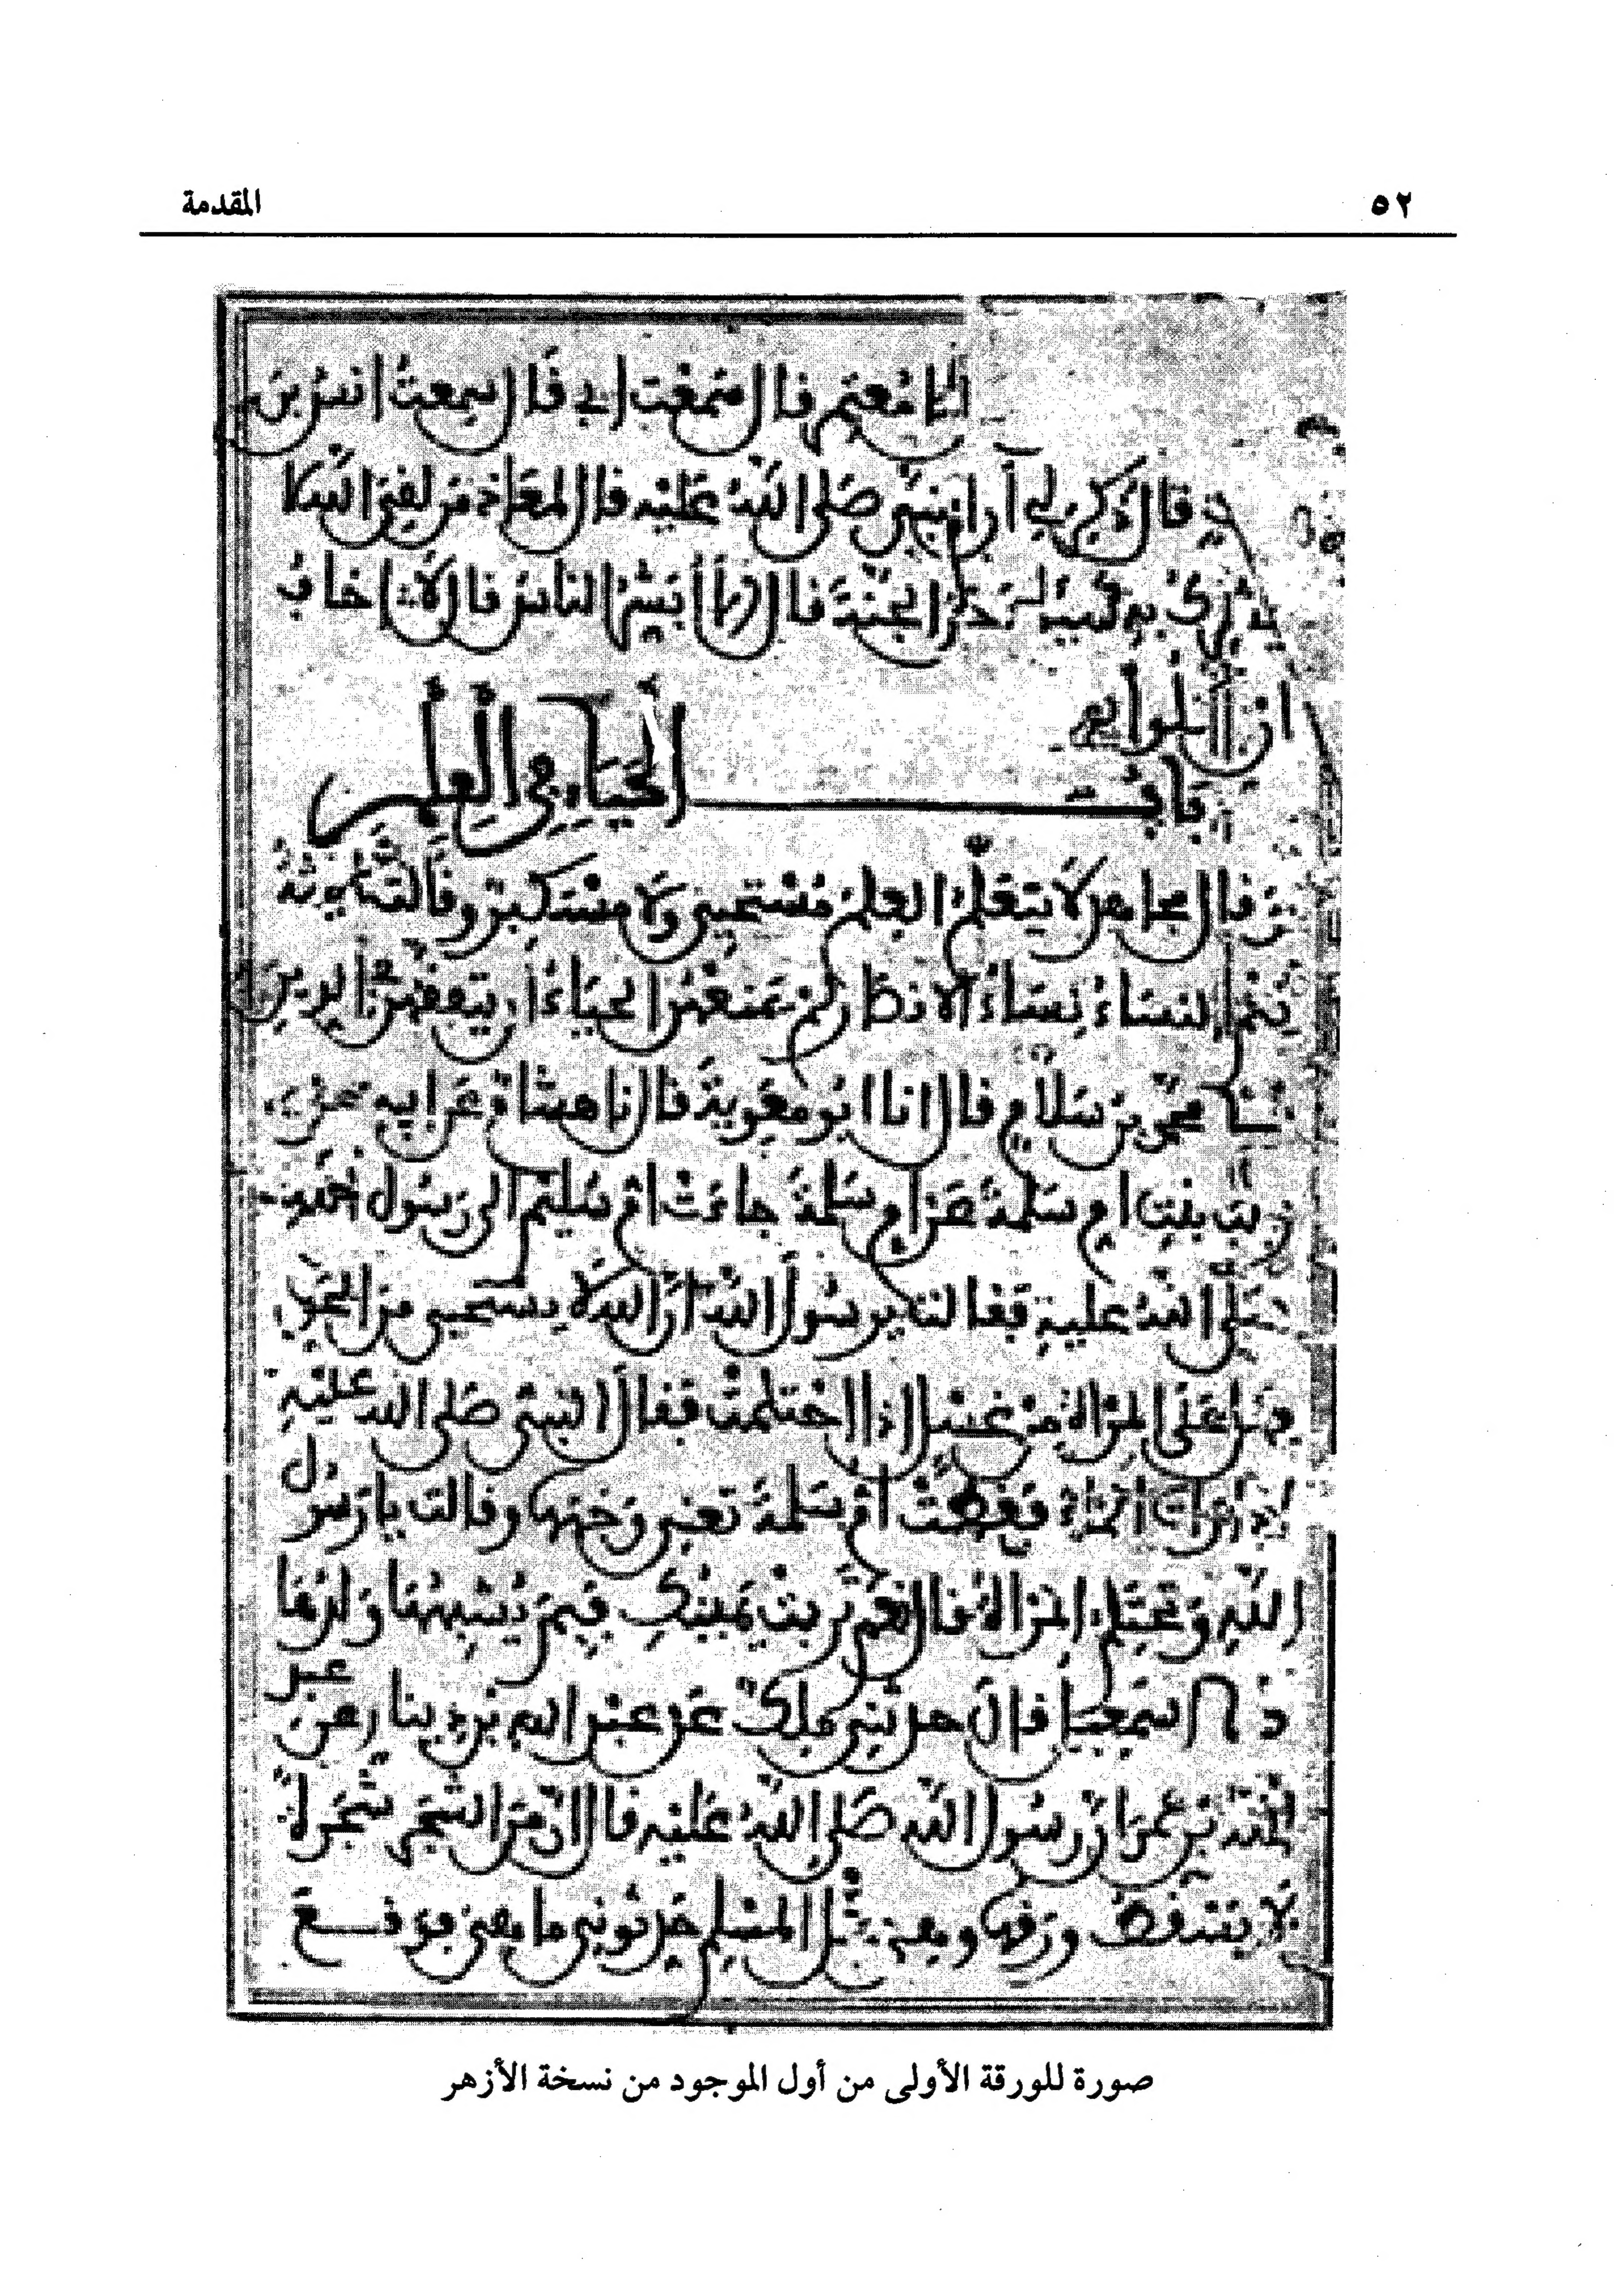 ٥٢
المقدمة
نا معتمر قال سمعت ابي قال سمعت انس بن
قال ذكر لي أن النبي صلى الله عليه قال لمعاذ من لقي الله لا
يشرك به شيئا دخل الجنة قال ألا أبشر الناس قال لا اخاف
ان يتكلوا
باب الحياء في العلم
وقال مجاهد لا يتعلم العلم مستحيي ولا مستكبر وقالت عائشة
نعم النساء نساء الانصار لم يمنعهن الحياء أن يتفقهن في الدين
محمد بن سلام قال انا ابو معوية قال نا هشام عن ابيه عن
زينب بنت ام سلمة عن ام سلمة جاءت ام سليم الى رسول الله
صلى الله عليه فقالت يرسول الله ان الله لا يستحيي من الحق
فهل على المرأة من غسل اذا احتلمت فقال النبي صلى الله عليه
اذا رأت الماء فغطت ام سلمة تعني وجهها وقالت يا رسول
الله وتحتلم المرأة قال نعم تربت يمينك فبم يشبهها ولدها
نا اسمعيل قال حدثني ملك عن عبد الله بن دينار عن عبد
الله بن عمر ان رسول الله صلى الله عليه قال ان من الشجر شجرة
لا يسقط ورقها وهي مثل المسلم حدثوني ما هي فوقع
صورة للورقة الأولى من أول الموجود من نسخة الأزهر